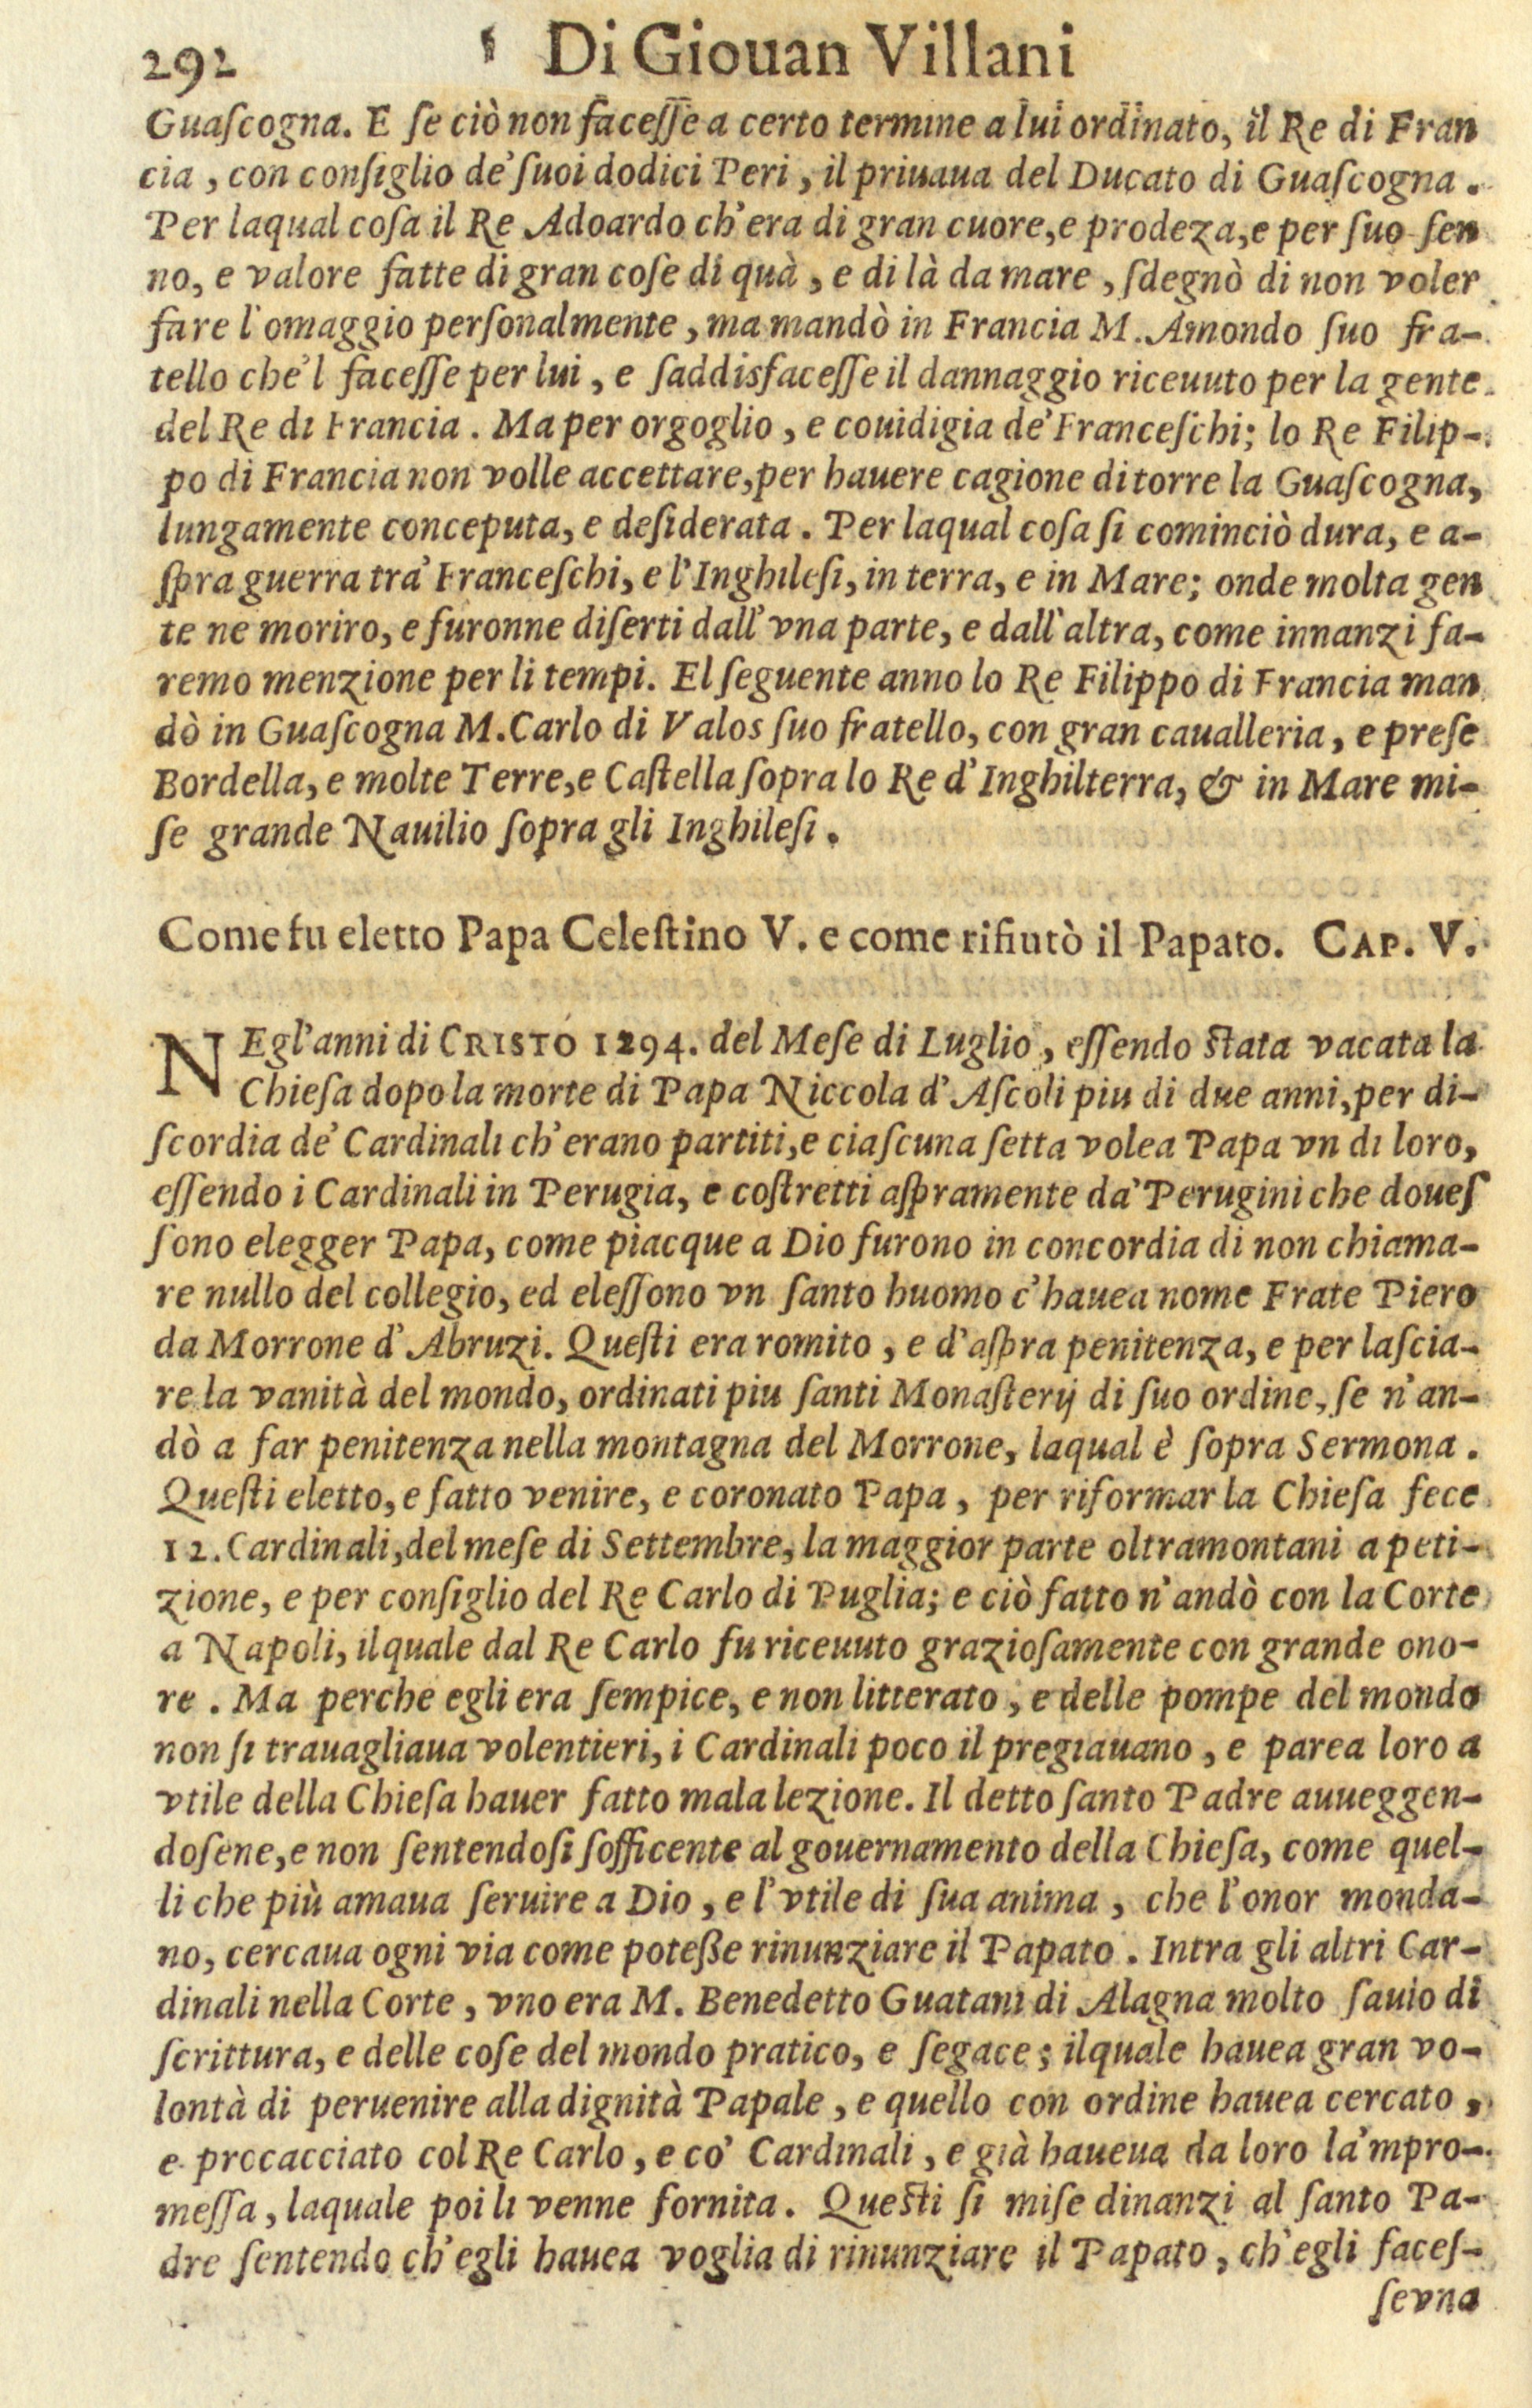 292 Di Giouan Villani
Guaſcogna. E ſe ciò non faceſſe a certo termine a lui ordinato, il Re di Fran
cia, con conſiglio de' ſuoi dodici Peri, il priuaua del Ducato di Guaſcogna.
Per laqual coſa il Re Adoardo ch'era di gran cuore, e prodeza, e per ſuo ſen
no, e valore fatte di gran coſe di quà, e di là da mare, ſdegnò di non voler
fare l'omaggio perſonalmente, ma mandò in Francia M. Amondo ſuo fra-
tello che'l faceſſe per lui, e ſaddisfaceſſe il dannaggio riceuuto per la gente
del Re di Francia. Ma per orgoglio, e couidigia de' Franceſchi; lo Re Filip-
po di Francia non volle accettare, per hauere cagione di torre la Guaſcogna,
lungamente conceputa, e deſiderata. Per laqual coſa ſi cominciò dura, e a-
ſpra guerra tra' Franceſchi, e l'Inghileſi, in terra, e in Mare; onde molta gen
te ne moriro, e furonne diſerti dall'vna parte, e dall'altra, come innanzi fa-
remo menzione per li tempi. El ſeguente anno lo Re Filippo di Francia man
dò in Guaſcogna M. Carlo di Valos ſuo fratello, con gran caualleria, e preſe
Bordella, e molte Terre, e Caſtella ſopra lo Re d'Inghilterra, & in Mare mi-
ſe grande Nauilio ſopra gli Inghileſi.
Come fu eletto Papa Celeſtino V. e come rifiutò il Papato. CAP. V.
NEgl'anni di CRISTO 1294. del Meſe di Luglio, eſſendo ſtata vacata la
Chieſa dopo la morte di Papa Niccola d'Aſcoli piu di due anni, per di-
ſcordia de' Cardinali ch'erano partiti, e ciaſcuna ſetta volea Papa vn di loro,
eſſendo i Cardinali in Perugia, e coſtretti aſpramente da' Perugini che doueſ
ſono elegger Papa, come piacque a Dio furono in concordia di non chiama-
re nullo del collegio, ed eleſſono vn ſanto huomo c'hauea nome Frate Piero
da Morrone d'Abruzi. Queſti era romito, e d'aſpra penitenza, e per laſcia-
re la vanità del mondo, ordinati piu ſanti Monaſterij di ſuo ordine, ſe n'an-
dò a far penitenza nella montagna del Morrone, laqual è ſopra Sermona.
Queſti eletto, e fatto venire, e coronato Papa, per riformar la Chieſa fece
12. Cardinali, del meſe di Settembre, la maggior parte oltramontani a peti-
zione, e per conſiglio del Re Carlo di Puglia; e ciò fatto n'andò con la Corte
a Napoli, ilquale dal Re Carlo fu riceuuto grazioſamente con grande ono-
re. Ma perche egli era ſempice, e non litterato, e delle pompe del mondo
non ſi trauagliaua volentieri, i Cardinali poco il pregiauano, e parea loro a
vtile della Chieſa hauer fatto mala lezione. Il detto ſanto Padre auueggen-
doſene, e non ſentendoſi ſofficente al gouernamento della Chieſa, come quel-
li che più amaua ſeruire a Dio, e l'vtile di ſua anima, che l'onor monda-
no, cercaua ogni via come poteße rinunziare il Papato. Intra gli altri Car-
dinali nella Corte, vno era M. Benedetto Guatani di Alagna molto ſauio di
ſcrittura, e delle coſe del mondo pratico, e ſegace; ilquale hauea gran vo-
lontà di peruenire alla dignità Papale, e quello con ordine hauea cercato,
e procacciato col Re Carlo, e co' Cardinali, e già haueua da loro la'mpro-
meſſa, laquale poi li venne fornita. Queſti ſi miſe dinanzi al ſanto Pa-
dre ſentendo ch'egli hauea voglia di rinunziare il Papato, ch'egli faceſ-
ſe vna